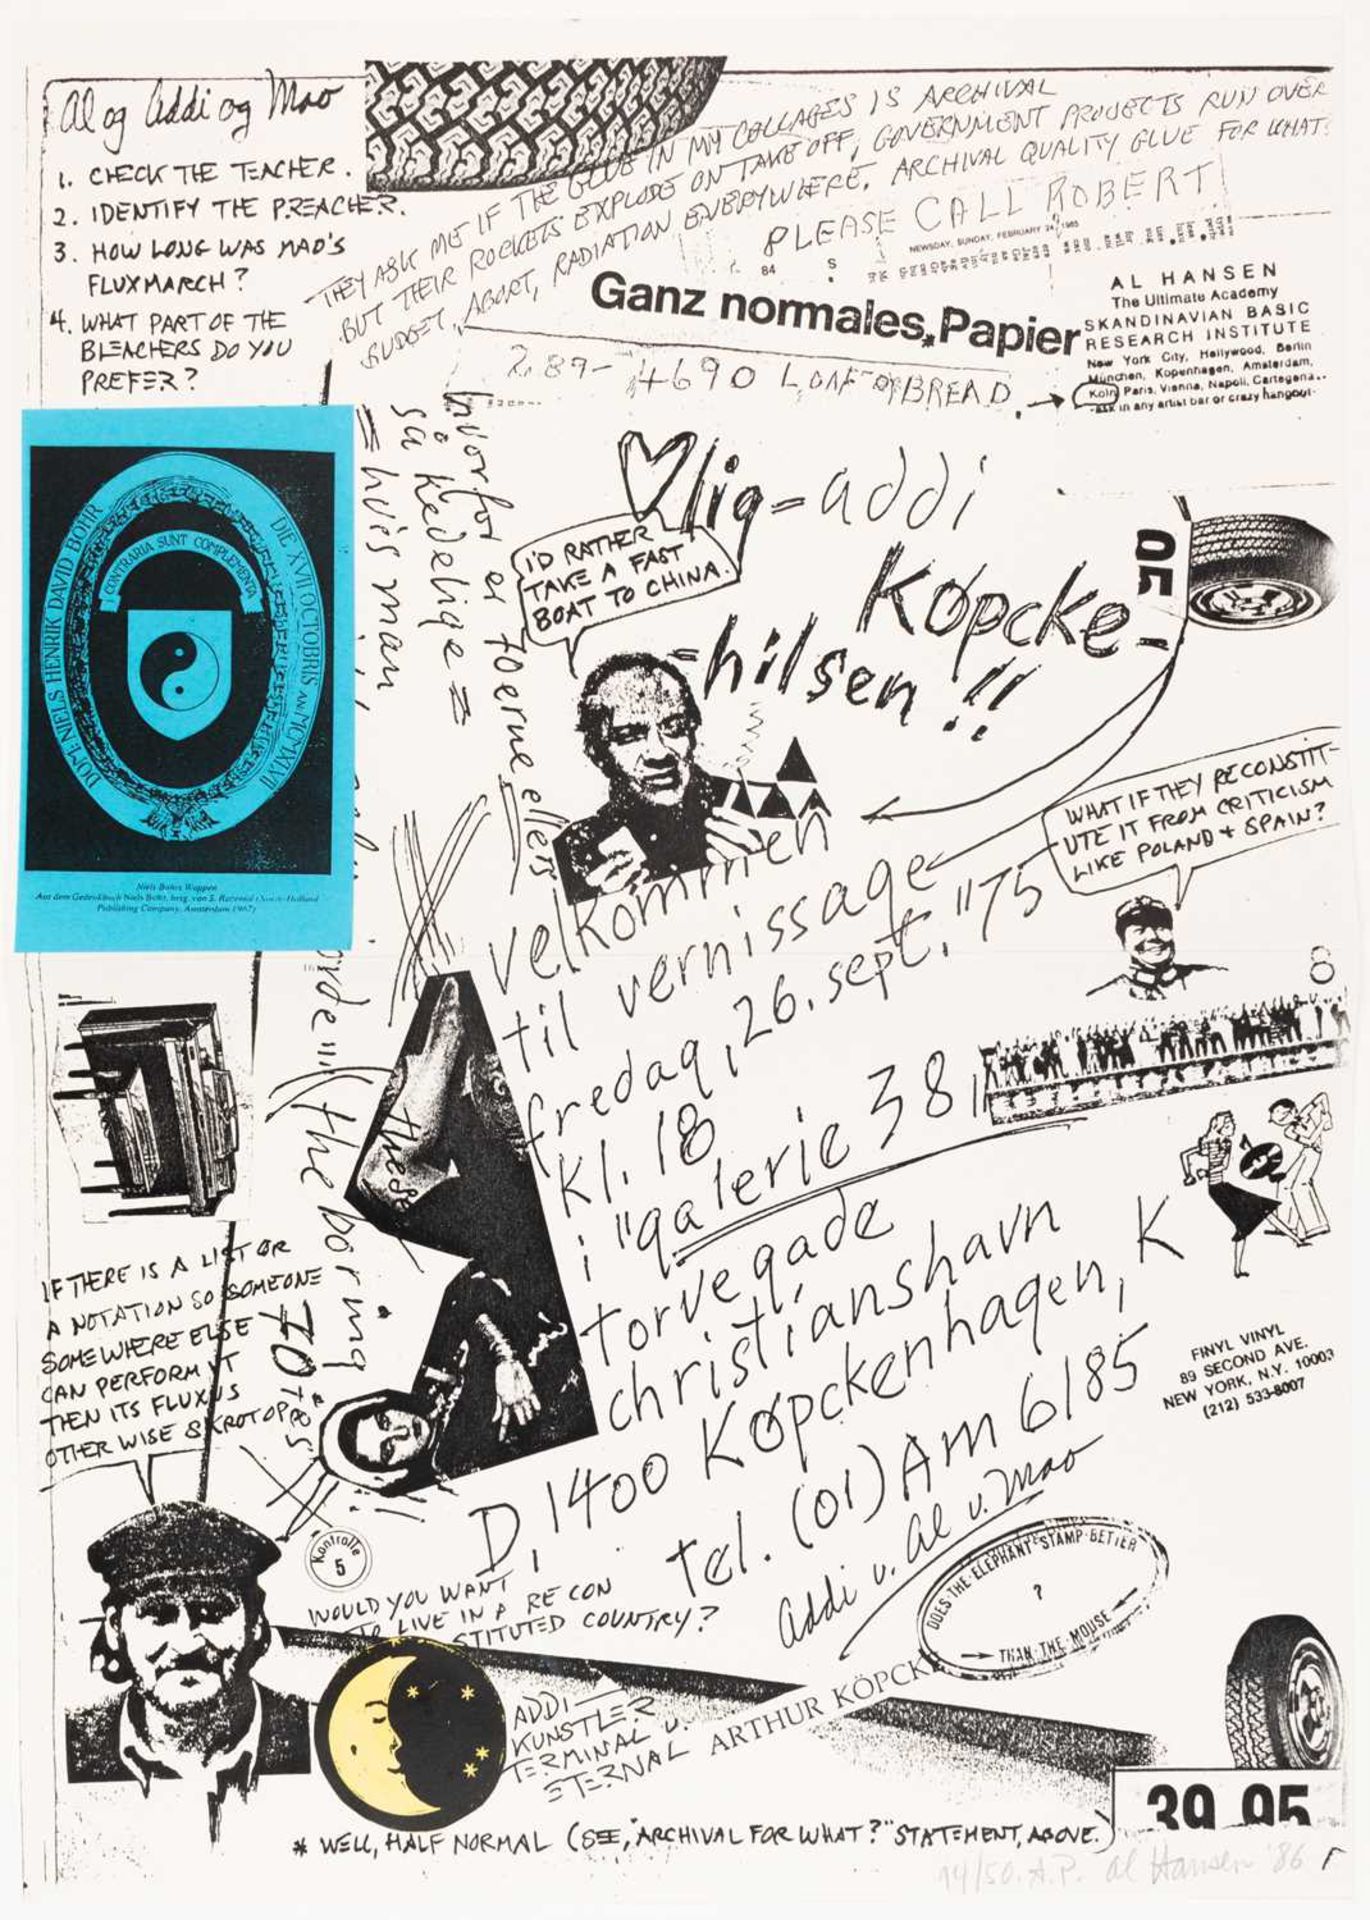 Al og Addi og Mao
1. CHECK THE TEACHER.
2. IDENTIFY THE PREACHER.
3. HOW LONG WAS MAO'S
FLUXMARCH?
4. WHAT PART OF THE
BLEACHERS DO YOU
PREFER?
THEY ASK ME IF THE GLUE IN MY COLLAGES IS ARCHIVAL
BUT THEIR ROCKETS EXPLODE ON TAKE OFF, GOVERNMENT PROJECTS RUN OVER
BUDGET, ABORT, RADIATION EVERYWHERE. ARCHIVAL QUALITY GLUE FOR WHAT?
PLEASE CALL ROBERT
NEWSDAY, SUNDAY, FEBRUARY 24, 1985
84 S
Ganz normales*Papier
AL HANSEN
The Ultimate Academy
SKANDINAVIAN BASIC
RESEARCH INSTITUTE
New York City, Hollywood, Berlin
München, Kopenhagen, Amsterdam,
Koln Paris, Vienna, Napoli, Cartegena..
-ask in any artist bar or crazy hangout-
2.89- 4690 LOAF OF BREAD
hvorfor er 70erne ellers
så kedelige =
= hvis man
(the boring
70TREES
these
lig-addi
Köpcke-
-hilsen!!
I'D RATHER
TAKE A FAST
BOAT TO CHINA.
DOM. NIELS HENRIK DAVID BOHR
DIE XVII OCTOBRIS AN MCMXLVII
CONTRARIA SUNT COMPLEMENTA
Niels Bohrs Wappen
Aus dem Gedenkbuch Niels Bohr, hrsg. von S. Rozental (North-Holland
Publishing Company, Amsterdam 1967)
WHAT IF THEY RECONSTIT-
UTE IT FROM CRITICISM
LIKE POLAND + SPAIN?
8
velkommen
til vernissage
fredag, 26. sept. "75
kl. 18
i "galerie 38"
torvegade
christianshavn
D, 1400 Köpckenhagen, K
tel. (01) Am 6185
Addi v. Al v. Mao
FINYL VINYL
89 SECOND AVE.
NEW YORK, N.Y. 10003
(212) 533-8007
IF THERE IS A LIST OR
A NOTATION SO SOMEONE
SOMEWHERE ELSE
CAN PERFORM IT
THEN ITS FLUXUS
OTHER WISE SKROTOP
Kontrolle
5
WOULD YOU WANT
TO LIVE IN A RE CON
STITUTED COUNTRY?
DOES·THE·ELEPHANT·STAMP·BETTER
?
THAN·THE·MOUSE
ADDI—
KUNSTLER
TERMINAL v.
ETERNAL
ARTHUR KÖPCKE
39 95
* WELL, HALF NORMAL (SEE, "ARCHIVAL FOR WHAT?" STATEMENT, ABOVE.)
14/50. A.P. Al Hansen '86